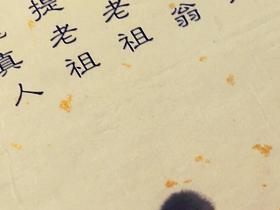 翁
老祖
提老祖
真人